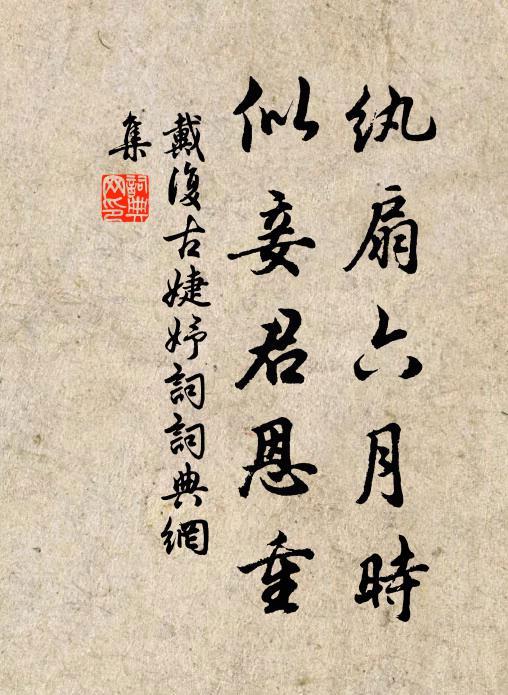 紈扇六月時
似妾君恩重
戴復古婕妤詞詞典網
集
詞典
网印